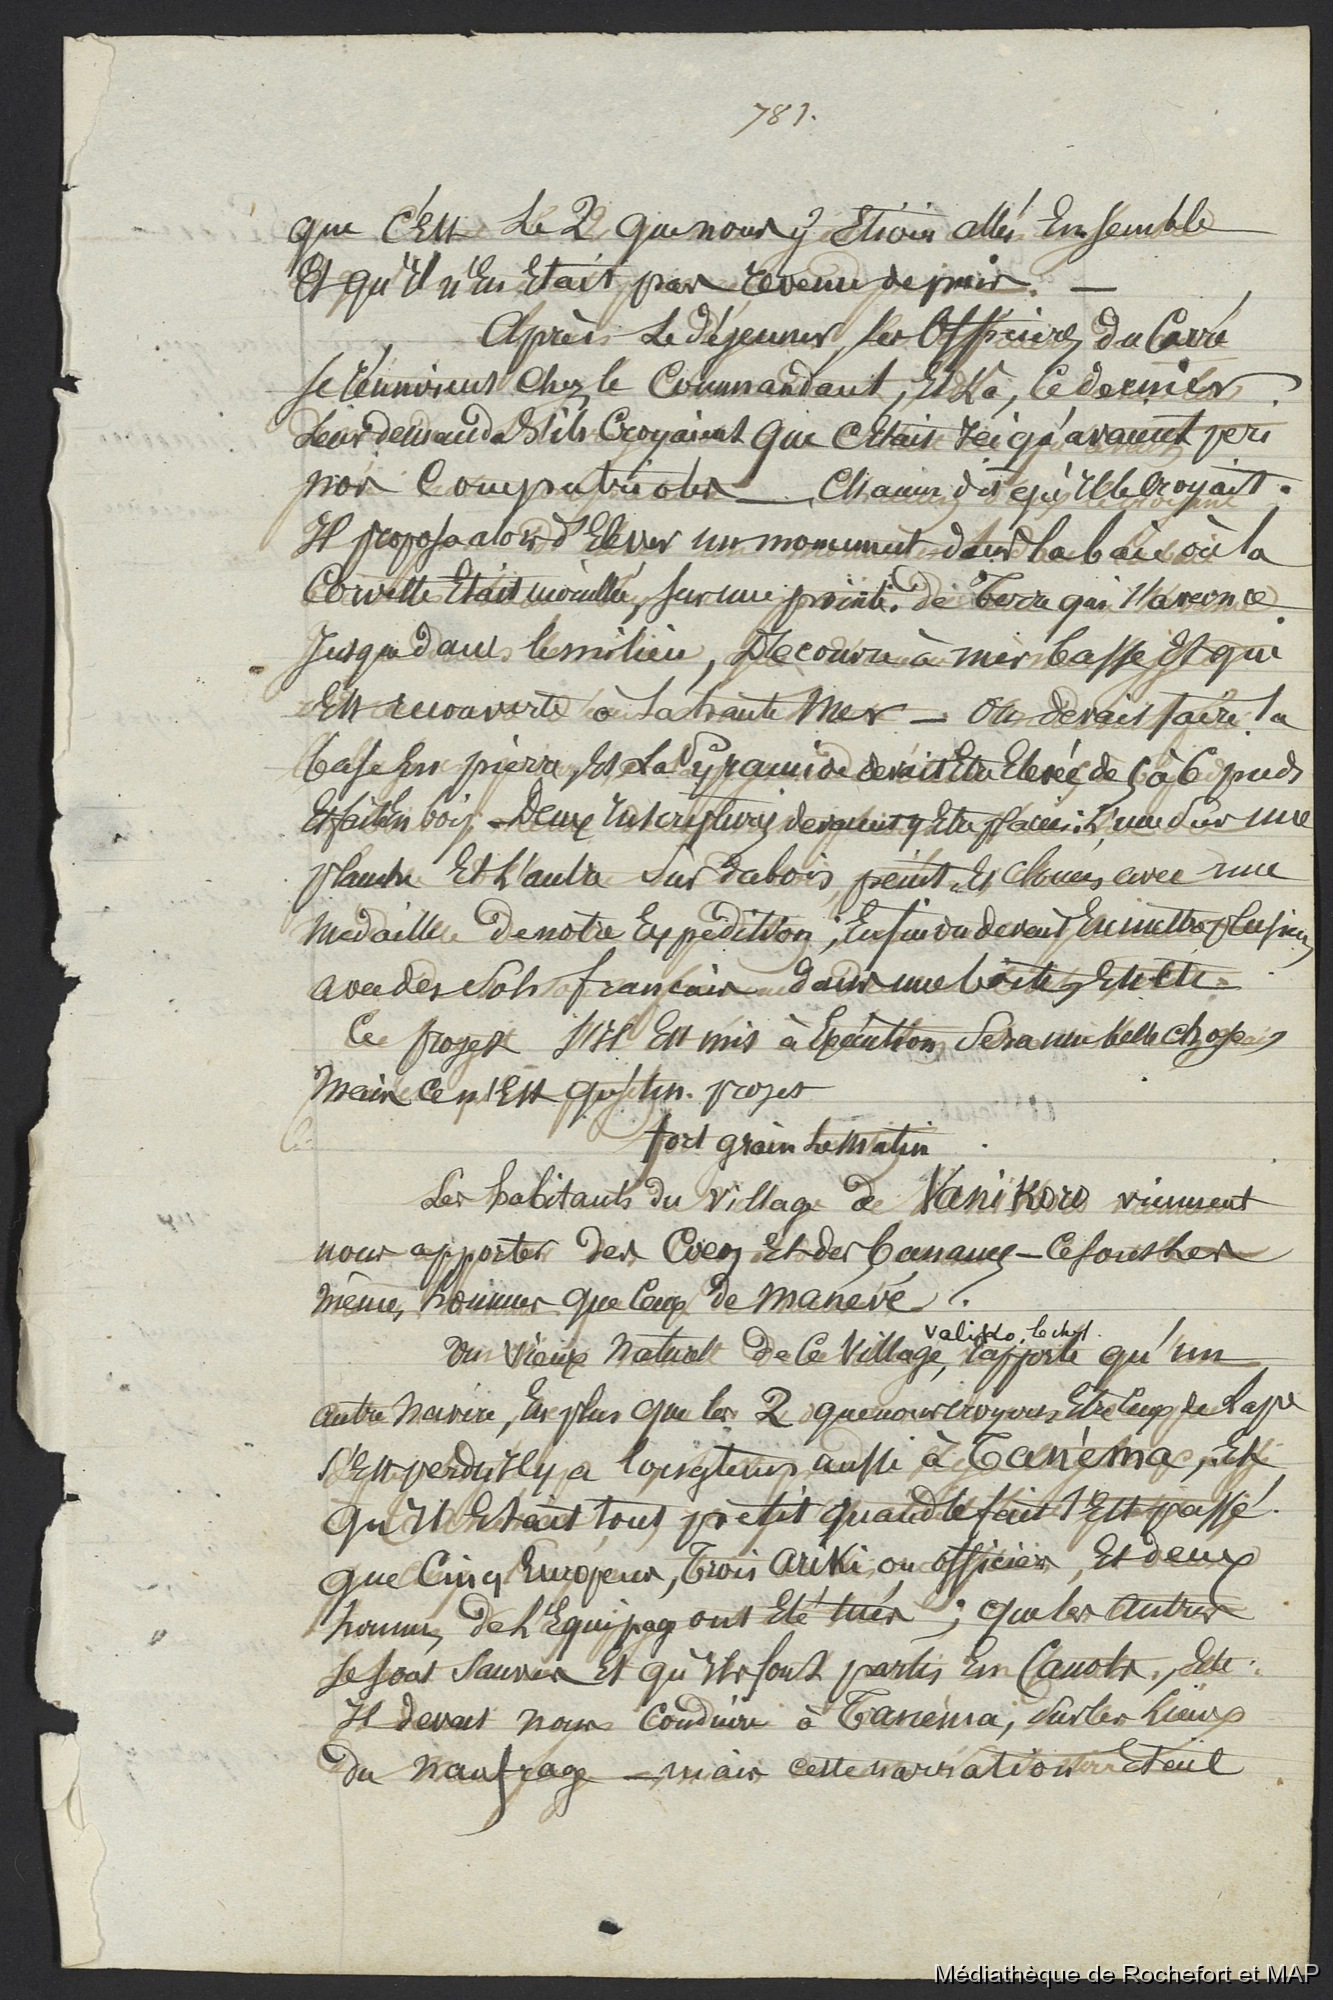 781.
que c'Est Le 2 que nous y Etions allés Ensemble
Et qu'Il n'En Etait pas revenu depuis. —
Après Le déjeuner, les Officiers du Carré
se réunirent Chez le Commandant, Et Là, Ce dernier
Leur demanda S'ils Croyaient que C'Etait Ici qu'avaient peri
nos Compatriotes — Chacun dit qu'Il le Croyait.
Il proposa alors d'Elever un monument dans la baie où la
Corvette Etait mouillée, sur une pointe de Terre qui s'avance
Jusque dans le milieu, Découvre à mer basse Et qui
Est recouverte à La haute Mer — On devait faire la
base En pierre, Et La Pyramide devait Etre Elevée de 5 à 6 pieds
Et fait En bois, — Deux Inscriptions devaient y Etre placées: L'une Sur une
planche Et L'autre Sur du bois, peint Et clouées avec une
médaille De notre Expédition; Enfin on devait En mettre plusieurs
avec des Sols français dans une boite, Etc Etc.
Ce projet s'Il Est mis à Exécution Sera une belle chose,
Mais Ce n'Est qu'Un projet
fort grain Le Matin
Les habitants du Village de Vanikoro viennent
nous apporter des Cocos Et des bananes — Ce sont Les
mêmes hommes que Ceux de Manévé.
Valiko, le chef.
Un vieux Naturel de Ce Village, rapporte qu'un
autre Navire, En plus que les 2 que nous croyons Etre Ceux de Lape
s'Est perdu Il y a longtems aussi à Tanéma, Et
qu'Il Etait tout petit quand le fait s'Est passé.
que Cinq Européens, Trois Ariki, ou officiers, Et deux
hommes de L'Equipage ont Eté tués; que les Autres
se sont Sauvés Et qu'Ils sont partis En Canots, Etc.
Il devait nous conduire à Tanéma, Sur les Lieux
du Naufrage — mais cette narration
Médiathèque de Rochefort et MAP